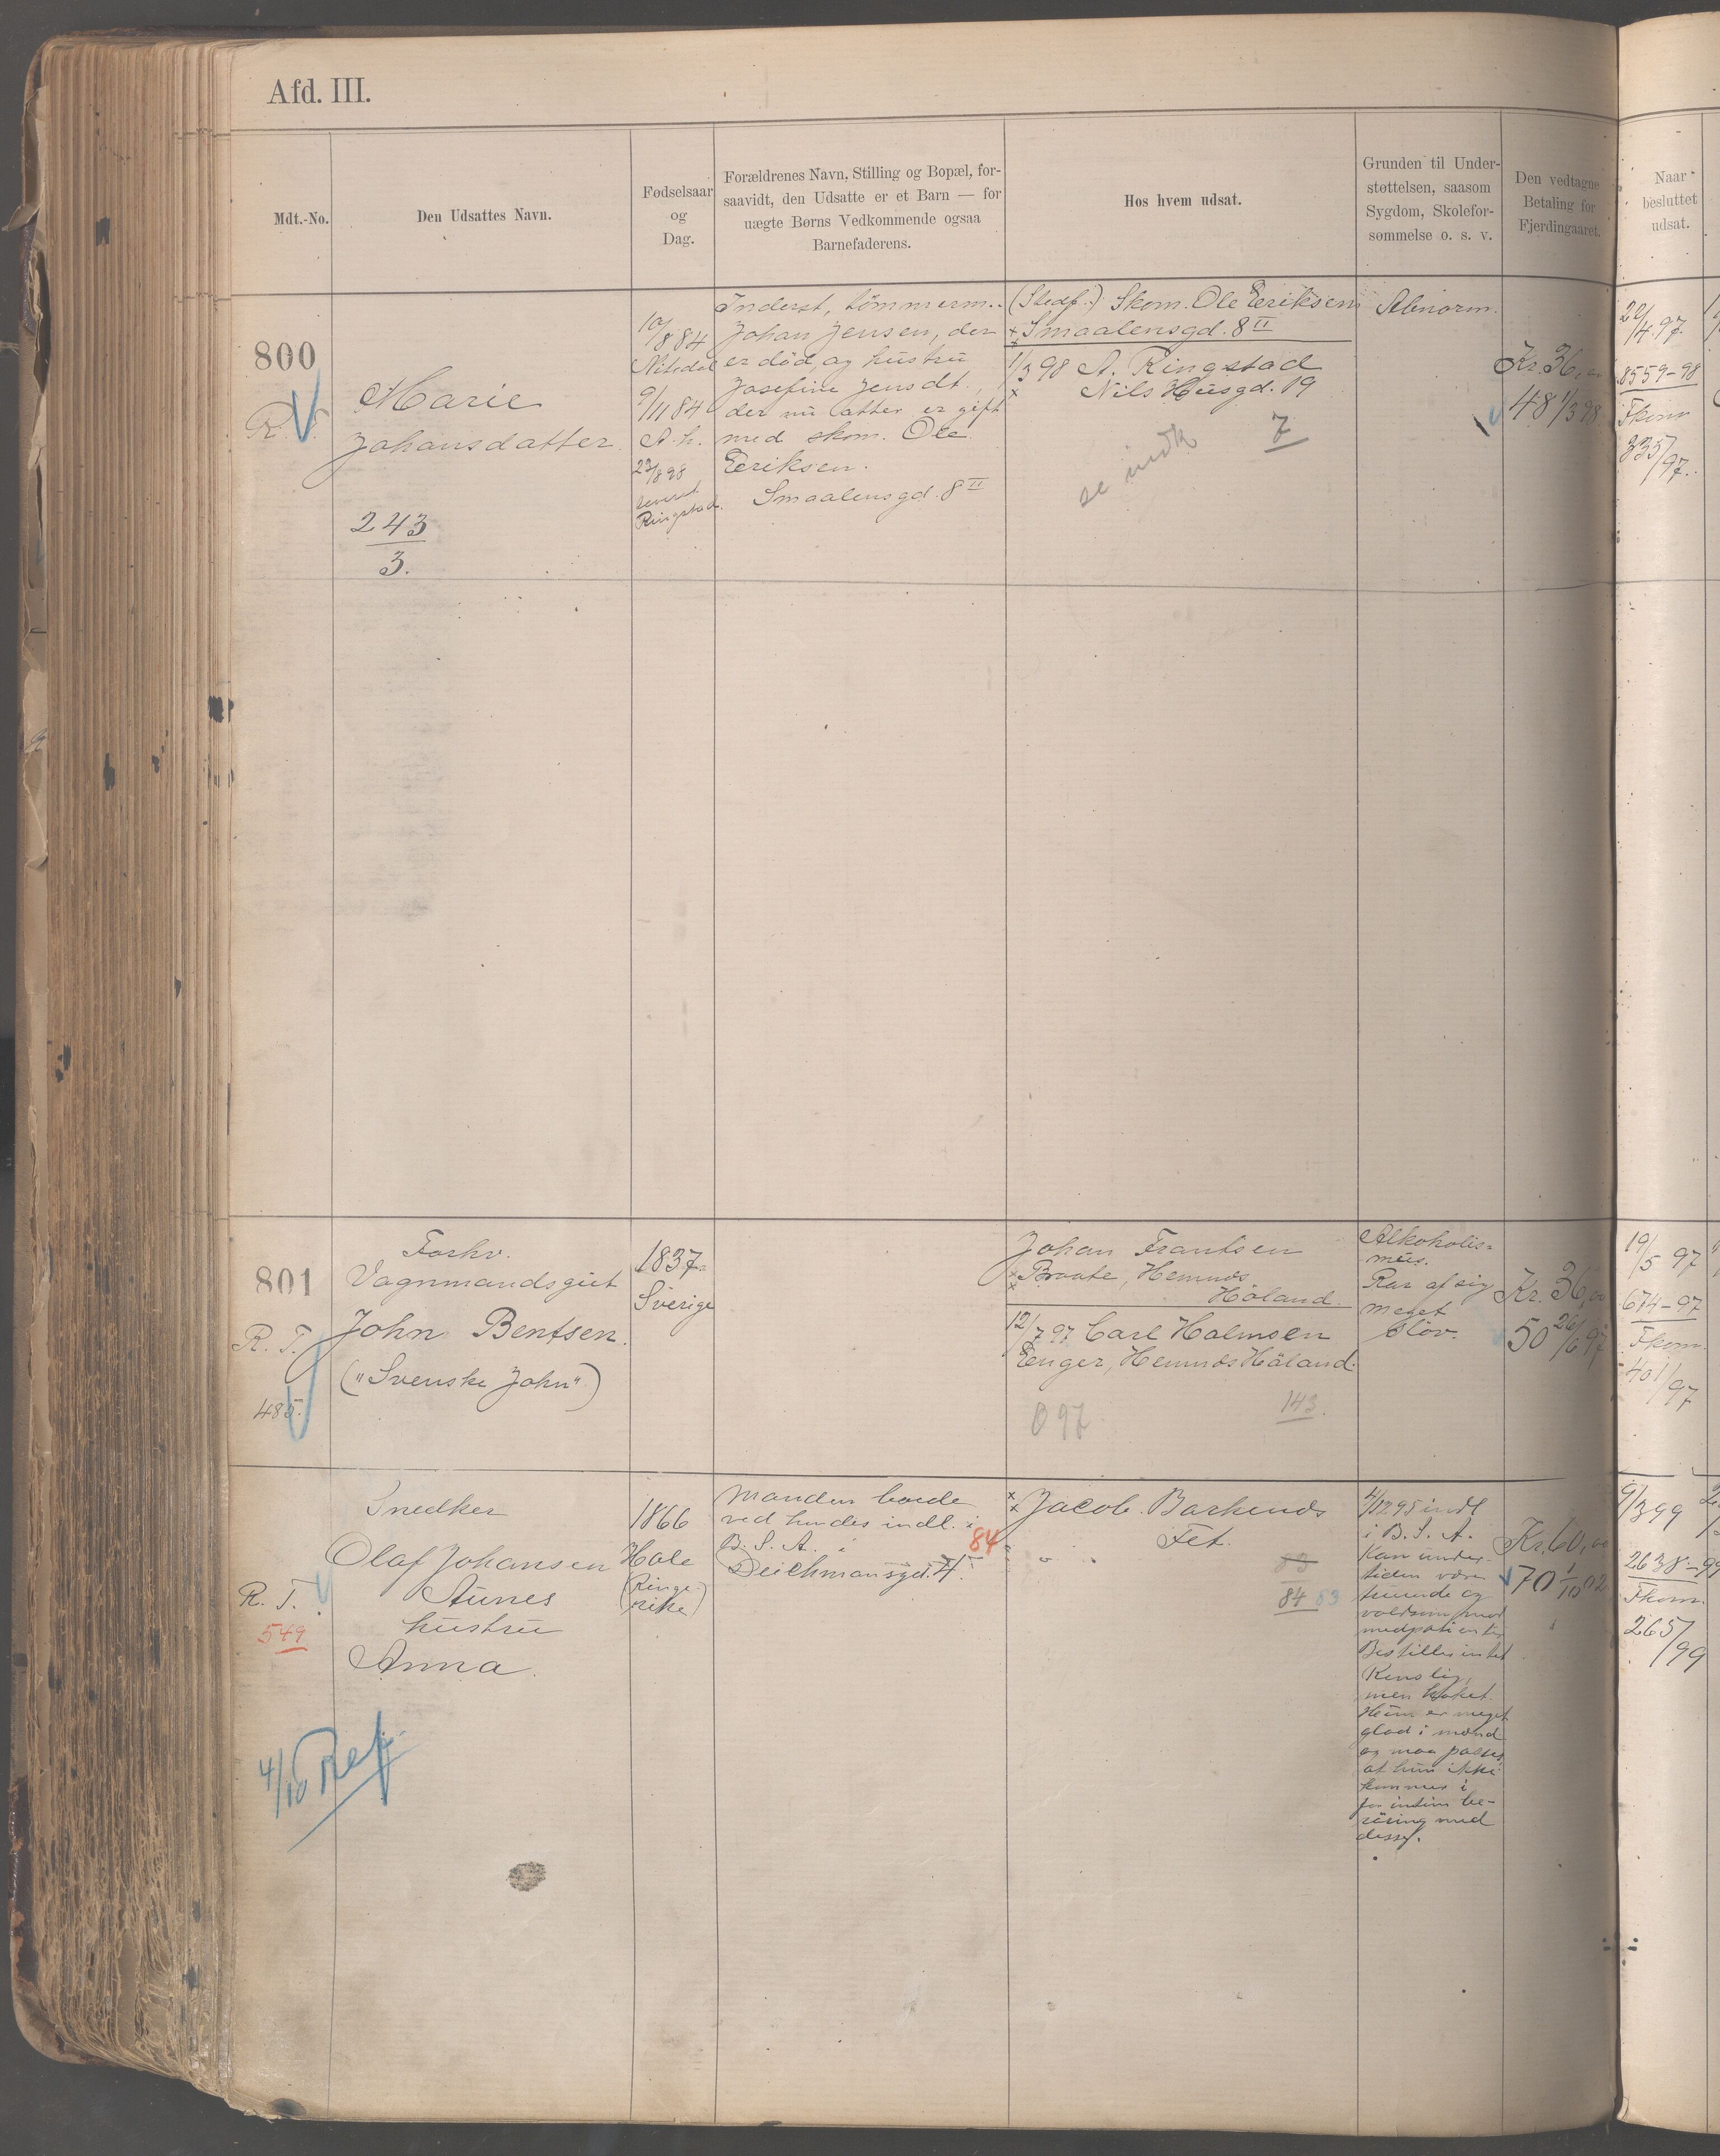 Afd. III.
Mdt.-No.
Den Udsattes Navn.
Fødselsaar
og
Dag.
Forældrenes Navn, Stilling og Bopæl, for-
saavidt, den Udsatte er et Barn — for
uægte Børns Vedkommende ogsaa
Barnefaderens.
Hos hvem udsat.
Grunden til Under-
støttelsen, saasom
Sygdom, Skolefor-
sømmelse o. s. v.
Den vedtagne
Betaling for
Fjerdingaaret.
Naar
besluttet
udsat.
800
R
Marie
Johansdatter
243
3.
10/8 84
Nitedal
9/11 84
A. h.
23/8 98
Ringstad.
Inderst, tömmerm.
Johan Jensen, der
er död, og hustru
Josefine Jensdt.,
der nu atter er gift
med skom. Ole
Eeriksen.
Smaalensgd. 8 II
(Stedf.) Skom. Ole Eeriksen
Smaalensgd. 8 II
1/3 98 A. Ringstad
Nils Huusgd. 19
7
se indk
Abnorm.
Kr. 36,00
48 1/3 98
22/4 97.
8559-98
Fkom
335/97.
801
R. T.
485.
Forhv.
Vagnmandsgut
John Bentsen.
("Svenske John")
1837
Sverige
Johan Frantsen
Braate, Hemnæs
Höland.
12/7 97 Carl Holmsen
Enger, Hemnæs Höland.
B 97
143.
Alkoholis=
mus.
Rar af sig
meget
slöv.
Kr. 36,00
50 26/6 97
19/5 97
674-97
Fkom.
401/97
R. T.
549
4/10 Ref
Snedker
Olaf Johansen
Aunes
hustru
Anna.
1866
Hole
(Ringe-
rike)
Manden boede
ved hendes indl. i
B. S. A. i
Deichmansgd. 7.
84
Jacob Barkenæs
Fet.
83
84 83
4/12 95 indl
i B. S. A.
Kan under-
tiden være
truende og
voldsom mod
medpatienter
Bestiller intet
Renslig,
men
Hun er meget
glad i mænd
og maa passes
at hun ikke
kommer i
for intim be-
röring med
disse.
Kr. 60,00
70 1/10 02
9/3 99
2638-99
Fkom.
265/99